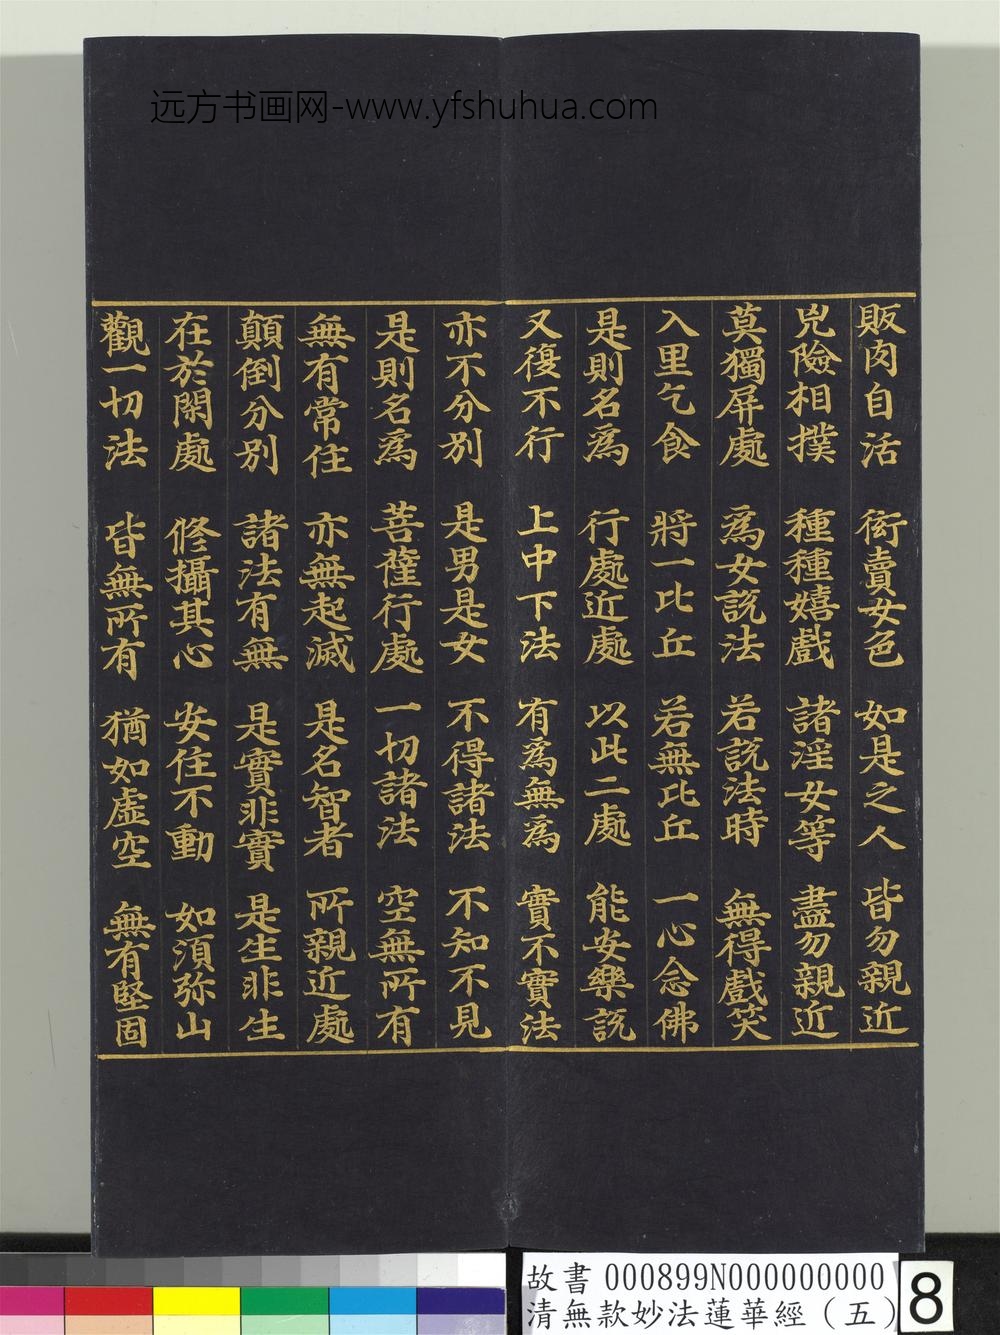 远方书画网-www.yfshuhua.com
販肉自活 衒賣女色 如是之人 皆勿親近
兇險相撲 種種嬉戲 諸淫女等 盡勿親近
莫獨屏處 為女說法 若說法時 無得戲笑
入里乞食 將一比丘 若無比丘 一心念佛
是則名為 行處近處 以此二處 能安樂說
又復不行 上中下法 有為無為 實不實法
亦不分別 是男是女 不得諸法 不知不見
是則名為 菩薩行處 一切諸法 空無所有
無有常住 亦無起滅 是名智者 所親近處
顛倒分別 諸法有無 是實非實 是生非生
在於閑處 修攝其心 安住不動 如須弥山
觀一切法 皆無所有 猶如虛空 無有堅固
故書 000899N000000000
清無款妙法蓮華經（五）
8